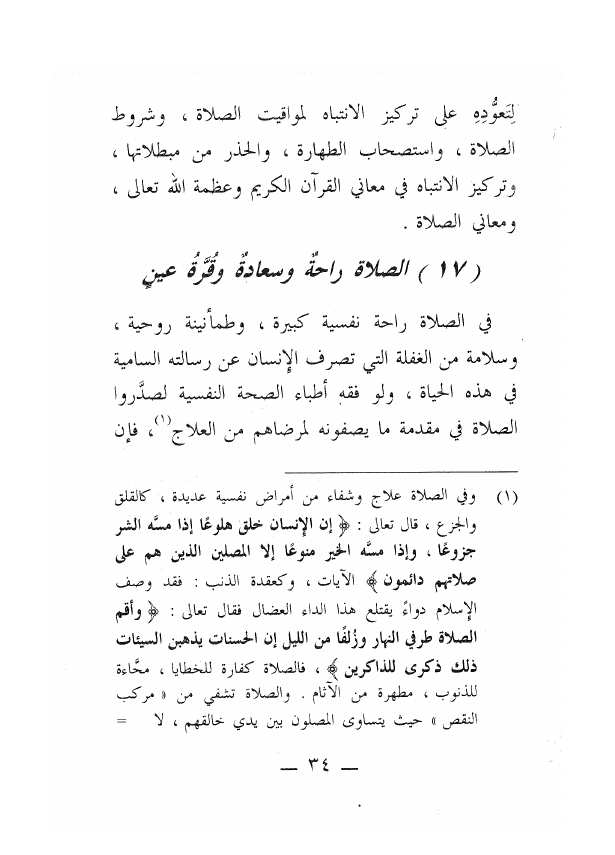 لِتَعوُّدِهِ على تركيز الانتباه لمواقيت الصلاة ، وشروط
الصلاة ، واستصحاب الطهارة ، والحذر من مبطلاتها ،
وتركيز الانتباه في معاني القرآن الكريم وعظمة الله تعالى ،
ومعاني الصلاة .
( ١٧ ) الصلاة راحةٌ وسعادةٌ وقُرَّةُ عينٍ
في الصلاة راحة نفسية كبيرة ، وطمأنينة روحية ،
وسلامة من الغفلة التي تصرف الإنسان عن رسالته السامية
في هذه الحياة ، ولو فقه أطباء الصحة النفسية لصدَّروا
الصلاة في مقدمة ما يصفونه لمرضاهم من العلاج(١)، فإن
(١) وفي الصلاة علاج وشفاء من أمراض نفسية عديدة ، كالقلق
والجزع ، قال تعالى : ﴿ إن الإنسان خلق هلوعًا إذا مسَّه الشر
جزوعًا ، وإذا مسَّه الخير منوعًا إلا المصلين الذين هم على
صلاتهم دائمون ﴾ الآيات ، وكعقدة الذنب : فقد وصف
الإسلام دواءً يقتلع هذا الداء العضال فقال تعالى : ﴿ وأقم
الصلاة طرفي النهار وزُلفًا من الليل إن الحسنات يذهبن السيئات
ذلك ذكرى للذاكرين ﴾ ، فالصلاة كفارة للخطايا ، محَّاءة
للذنوب ، مطهرة من الآثام . والصلاة تشفي من « مركب
النقص » حيث يتساوى المصلون بين يدي خالقهم ، لا =
— ٣٤ —